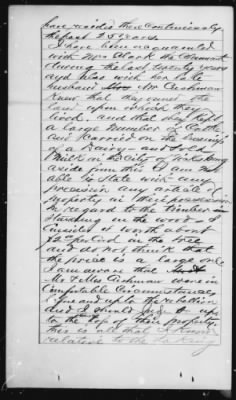 have resided there continuously
the past 25 years
I have been acquainted
with Mrs the Claimant
during the last twenty years
and also with her late
husband Mr Cushman
Know that they owned the
farm upon which they
lived, and that they kept
a large number of Cattle
and Carried on the business
of a Dairy - and Sold
Milk in the City of Vicksburg
aside from this I am not
able to State with any
precision any article of
property in their possession
In regard to the timber
standing in the woods
Consider it worth about
per cord in the tree
and do not think that
the price is a large one
I am aware that
Mr & Mrs Cushman were in
Comfortable Circumstances
and up to the rebellion
and I should say - up
to the loss of their property.
This is all that I know
relative to the taking